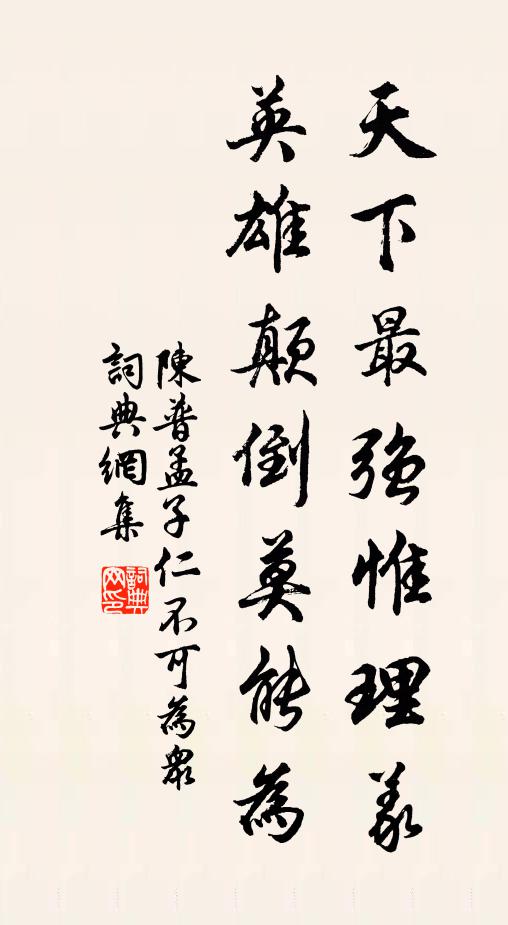 天下最強惟理義
英雄顛倒莫能為
陳普孟子仁不可為眾
詞典網集
詞典網印